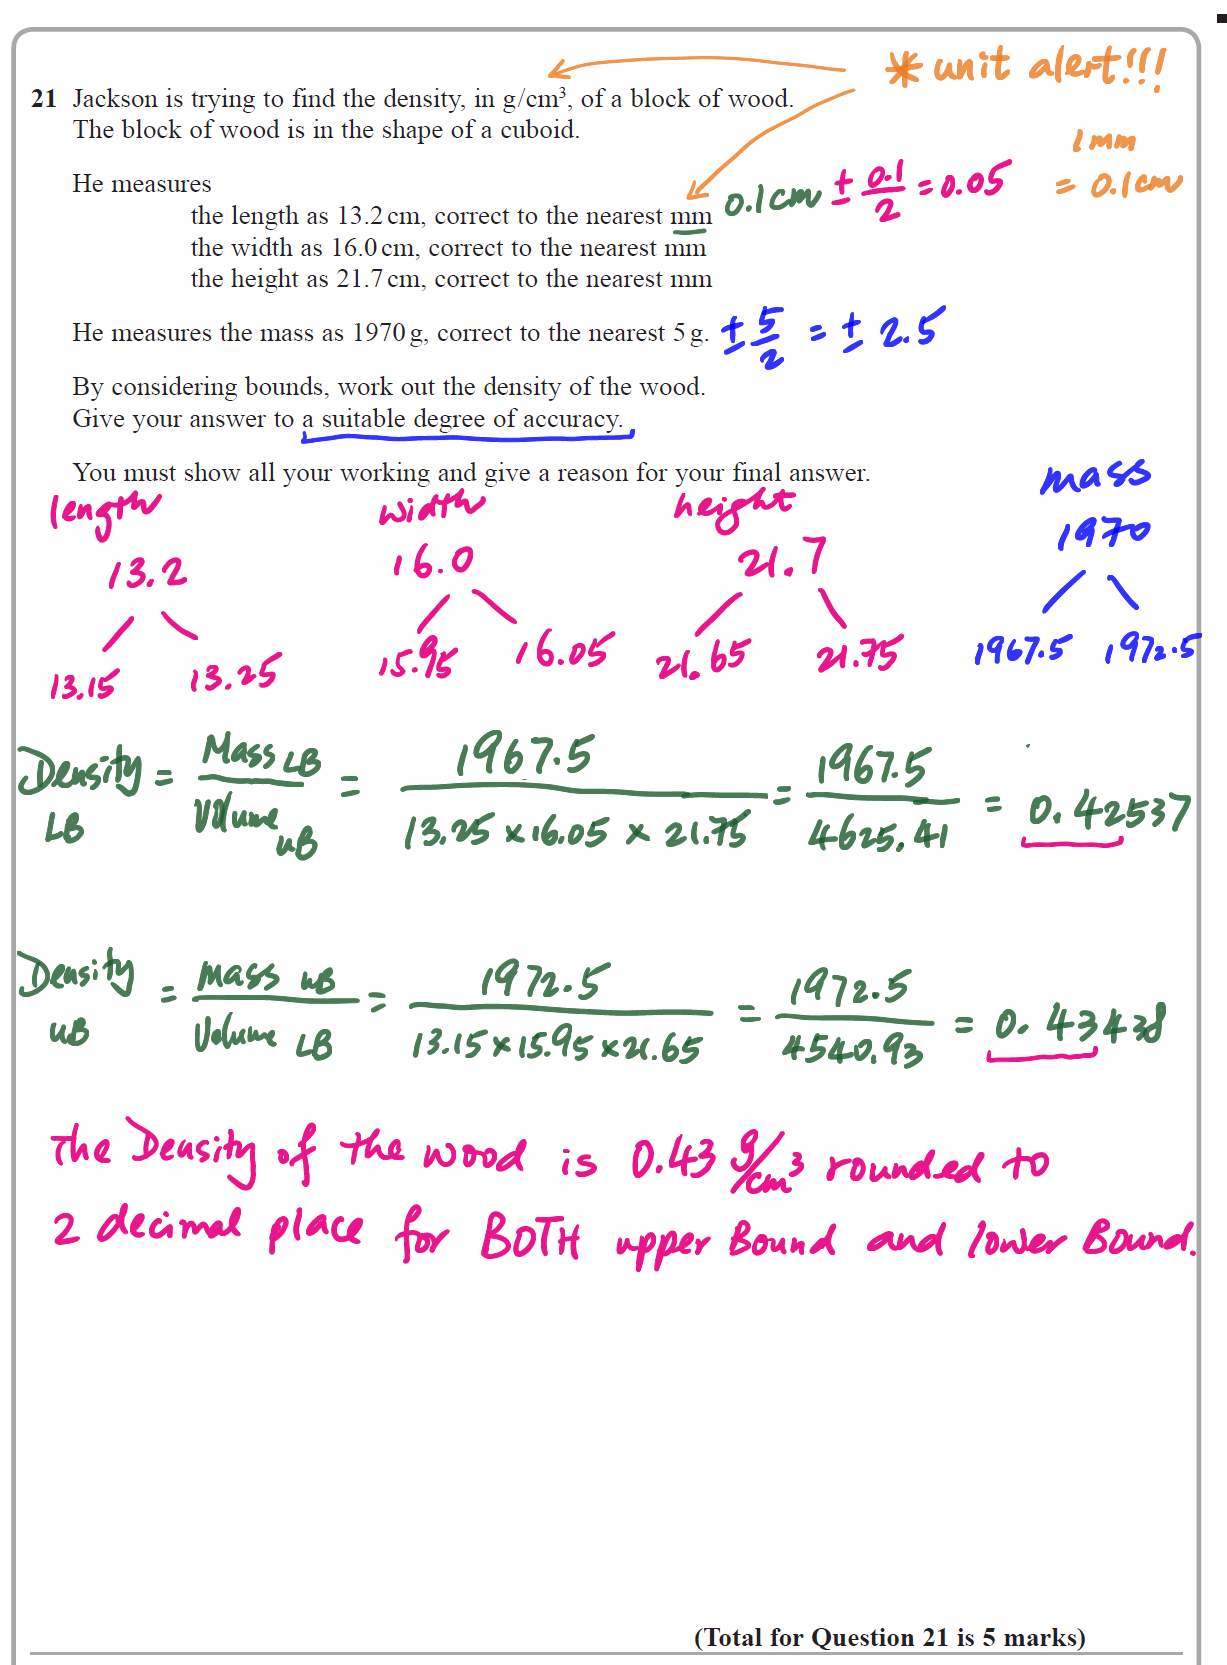 * unit alert!!!
21 Jackson is trying to find the density, in g/cm³, of a block of wood.
The block of wood is in the shape of a cuboid.
1 mm
= 0.1cm
He measures
0.1cm ± 0.1/2 = 0.05
the length as 13.2 cm, correct to the nearest mm
the width as 16.0 cm, correct to the nearest mm
the height as 21.7 cm, correct to the nearest mm
He measures the mass as 1970 g, correct to the nearest 5 g. ± 5/2 = ± 2.5
By considering bounds, work out the density of the wood.
Give your answer to a suitable degree of accuracy.
You must show all your working and give a reason for your final answer.
length width height mass
13.2 16.0 21.7 1970
13.15 13.25 15.95 16.05 21.65 21.75 1967.5 1972.5
Density LB = Mass LB / Volume UB = 1967.5 / 13.25 × 16.05 × 21.75 = 1967.5 / 4625.41 = 0.42537
Density UB = Mass UB / Volume LB = 1972.5 / 13.15 × 15.95 × 21.65 = 1972.5 / 4540.93 = 0.43438
The Density of the wood is 0.43 g/cm³ rounded to
2 decimal place for BOTH upper Bound and lower Bound.
(Total for Question 21 is 5 marks)